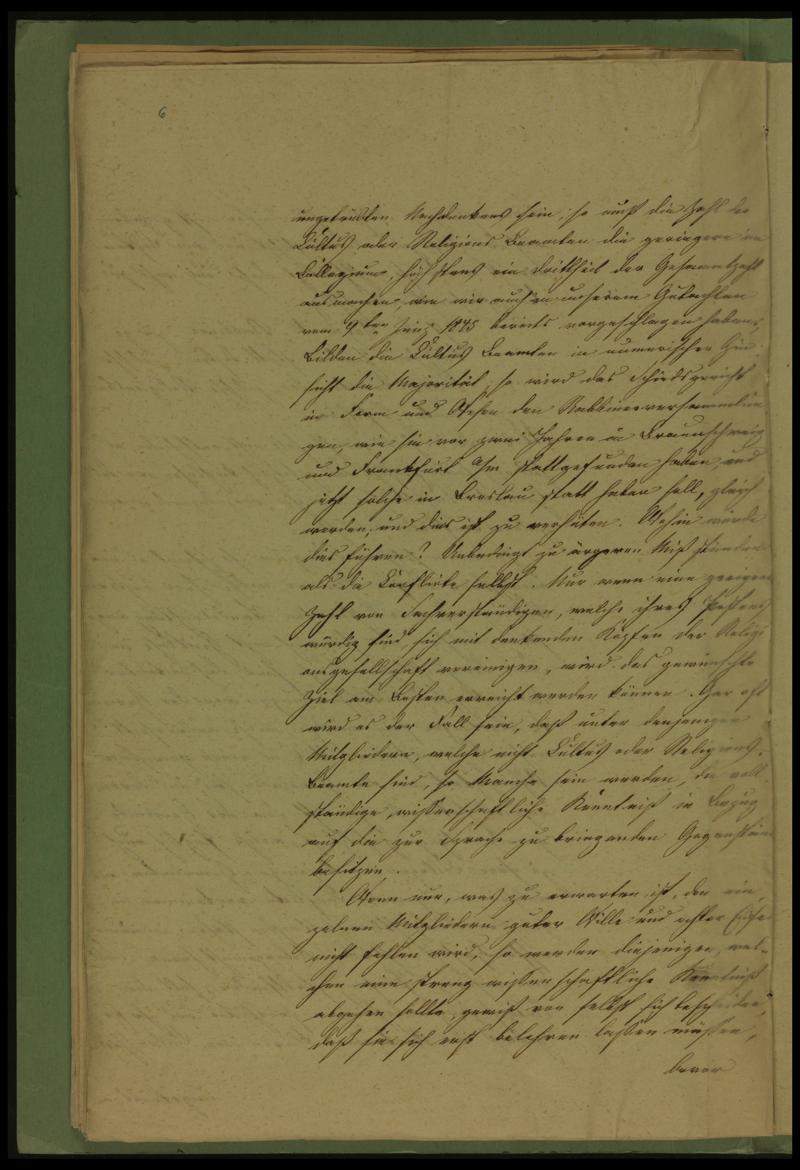 6
ungetrübten Nachdenkens sein; so muß die Zahl der
Cultus oder Religions Beamten die geringere im
Collegium, höchstens ein Drittheil der Gesammtzahl
ausmachen, wie wir auch in unserem Gutachten
vom 9ten Juny 1845 bereits vorgeschlagen haben;
bilden die Cultus Beamten in numerischer Hin-
sicht die Majorität, so wird das Schiedsgericht
in Form und Wesen den Rabbinerversammlun
gen, wie sie vor zwei Jahren in Braunschweig
und Frankfurt a/m stattgefunden haben, und
jetzt solche in Breslau statt haben soll, gleich
werden; und dies ist zu verhüten. Wohin würde
dies führen? Unbedingt zu ärgeren Mißständen
als die Conflicte selbst. Nur wenn eine geringe
Zahl von Sachverständigen, welche ihres Postens
würdig sind sich mit denkenden Köpfen der Religi
onsgesellschaft vereinigen, wird das gewünschte
Ziel am Besten erreicht werden können. Gar oft
wird es der Fall sein, daß unter denjenigen
Mitgliedern, welche nicht Cultus oder Religions-
Beamte sind, so Manche sein werden, die voll-
ständige, wissenschaftliche Kenntniß in Bezug
auf die zur Sprache zu bringenden Gegenstän
besitzen.
Wenn nun, was zu erwarten ist, den ein
zelnen Mitgliedern guter Wille und echter
nicht fehlen wird, so werden diejenigen, wel-
chen eine streng wissenschaftliche Kenntniß
abgehen sollte, gewiß von selbst sich bescheiden,
daß sie sich erst belehren lassen müssen,
bevor